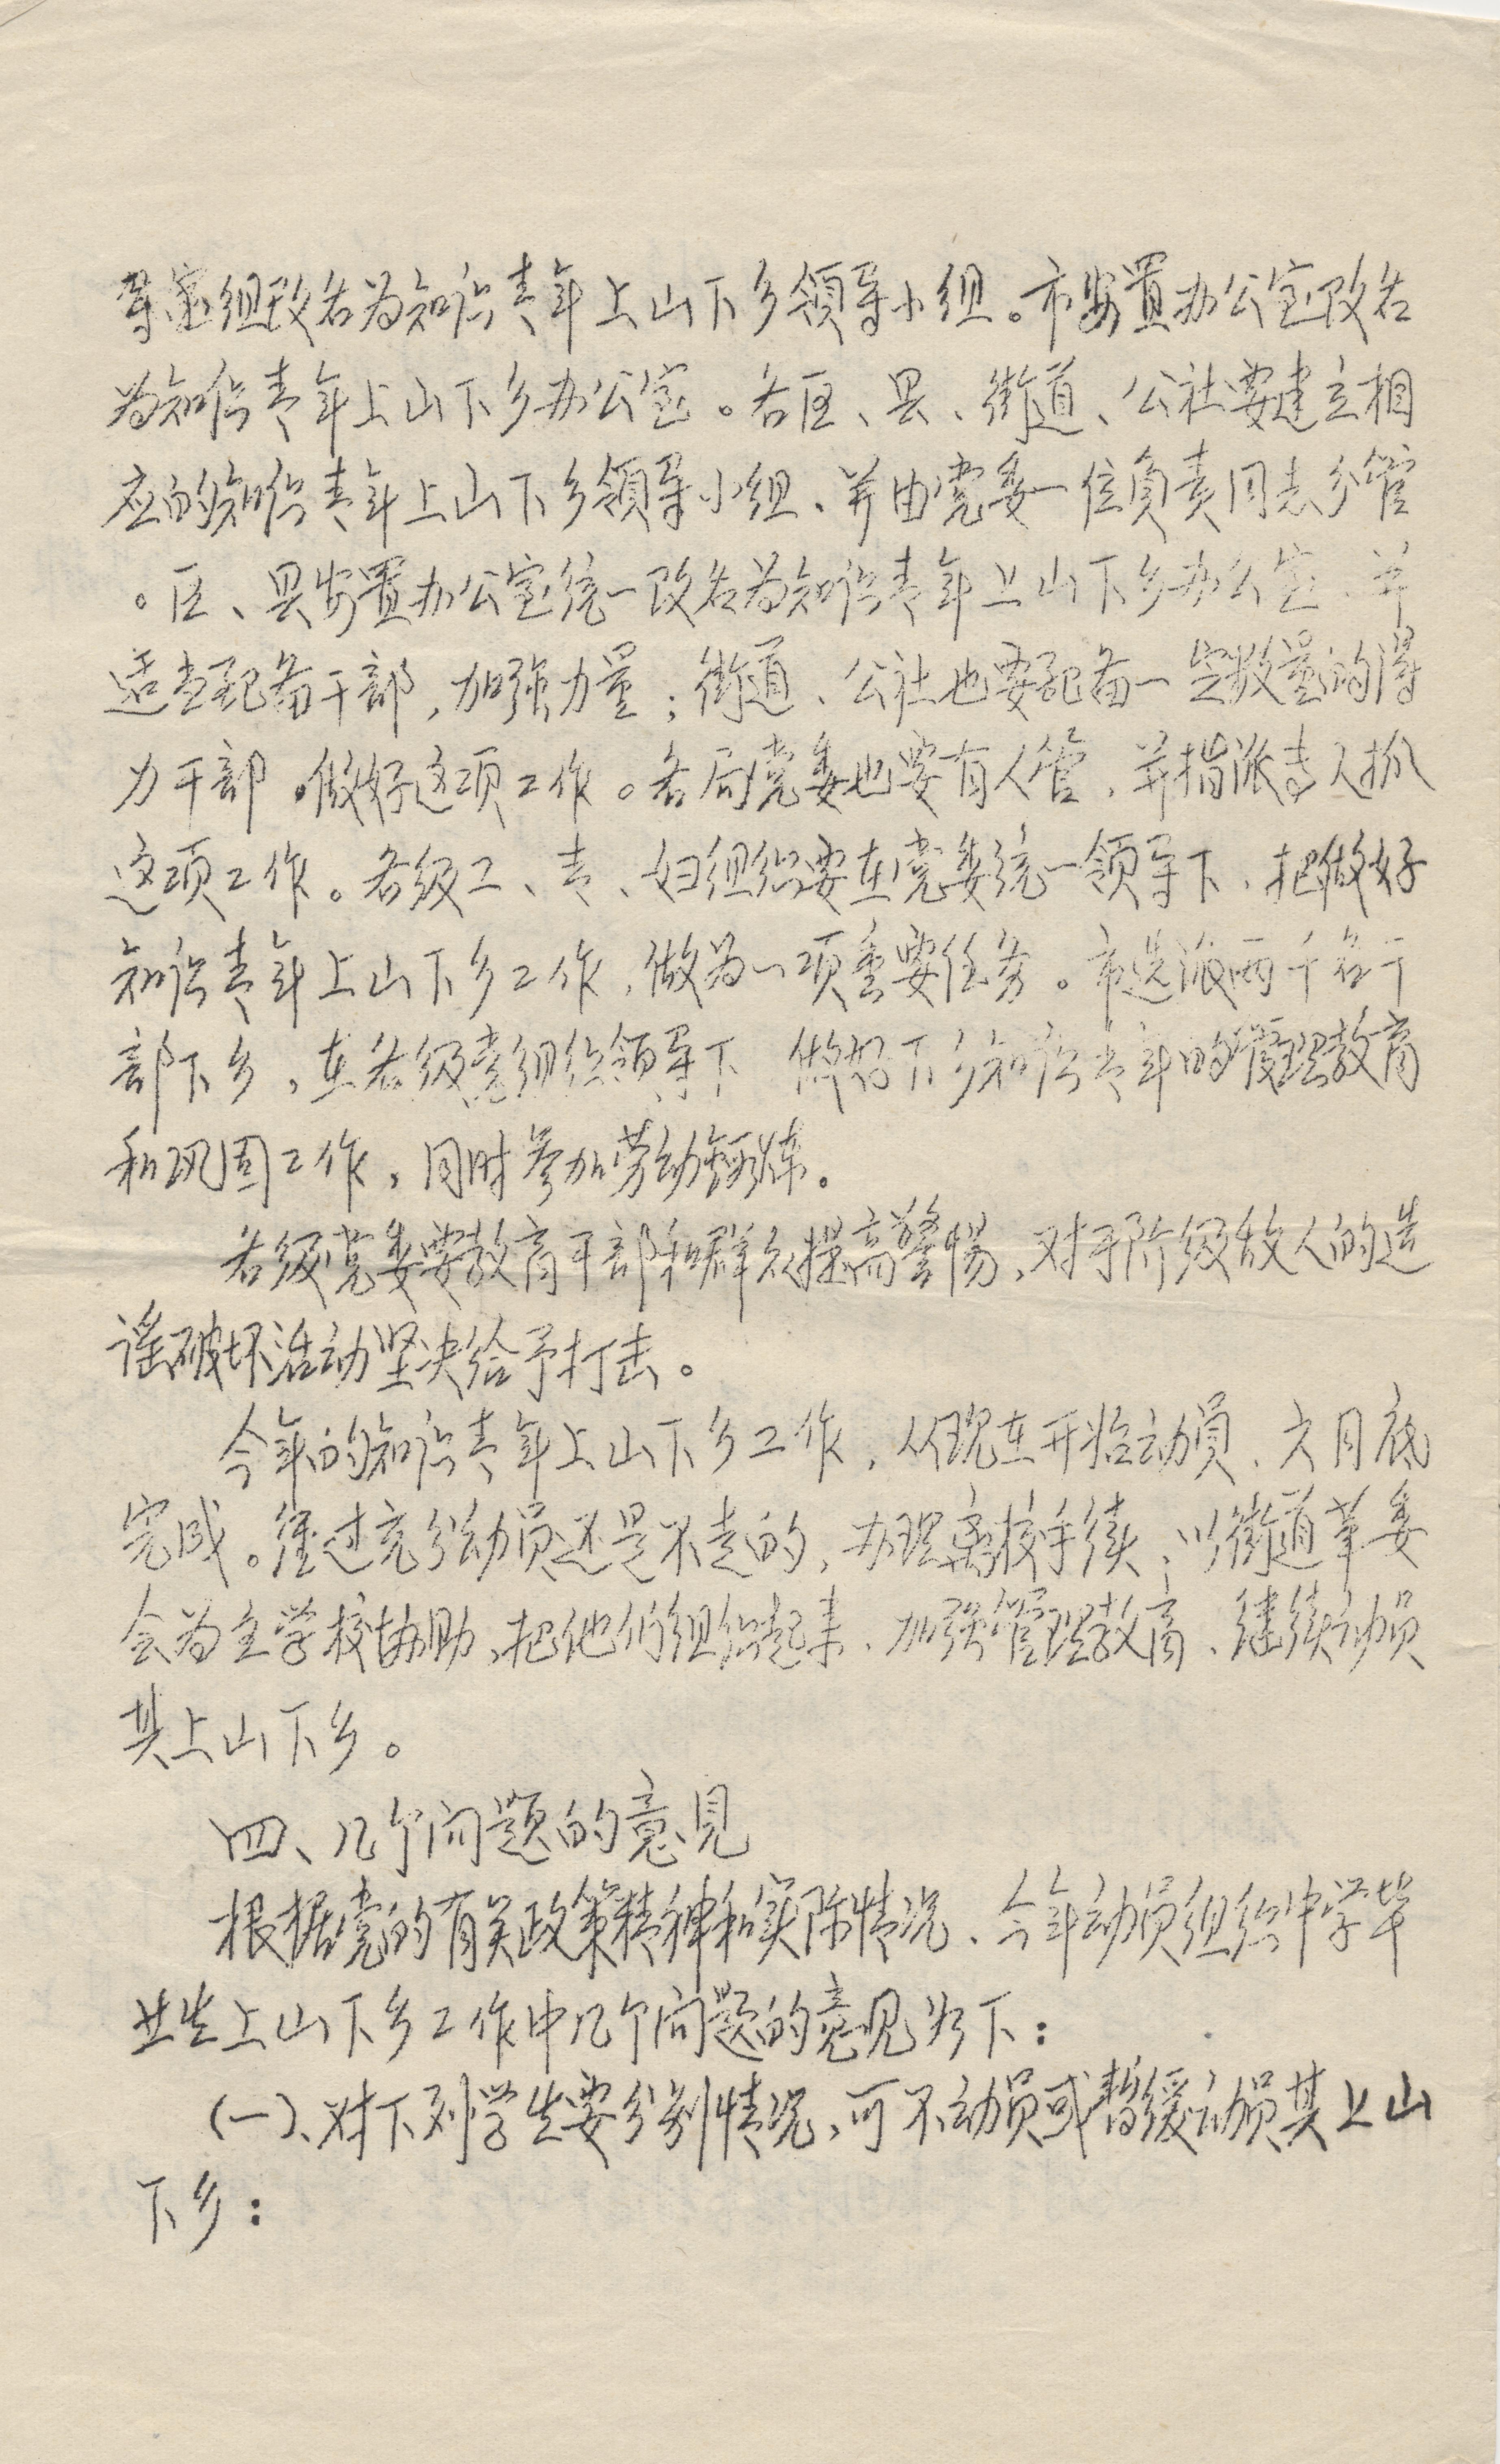 导室组改名为知识青年上山下乡领导小组。市安置办公室改名
为知识青年上山下乡办公室。各区、县、街道、公社要建立相
应的知识青年上山下乡领导小组、并由党委一位负责同志分管
。区、县安置办公室统一改名为知识青年上山下乡办公室、并
适当配备干部，加强力量；街道、公社也要配备一定数量的得
力干部，做好这项工作。各局党委也要有人管，并指派专人抓
这项工作。各级工、青、妇组织要在党委统一领导下，把做好
知识青年上山下乡工作，做为一项重要任务。市选派两千名干
部下乡，在各级党组织领导下 做好下乡知识青年的管理教育
和巩固工作，同时参加劳动锻炼。
各级党委要教育干部和群众提高警惕，对于阶级敌人的造
谣破坏活动坚决给予打击。
今年的知识青年上山下乡工作，从现在开始动员、六月底
完成。经过充分动员还是不走的，办理离校手续，以街道革委
会为主学校协助，把他们组织起来、加强管理教育、继续动员
其上山下乡。
四、几个问题的意见
根据党的有关政策精神和实际情况、今年动员组织中学毕
业生上山下乡工作中几个问题的意见如下：
(一)、对下列学生要分别情况，可不动员或暂缓动员其上山
下乡：